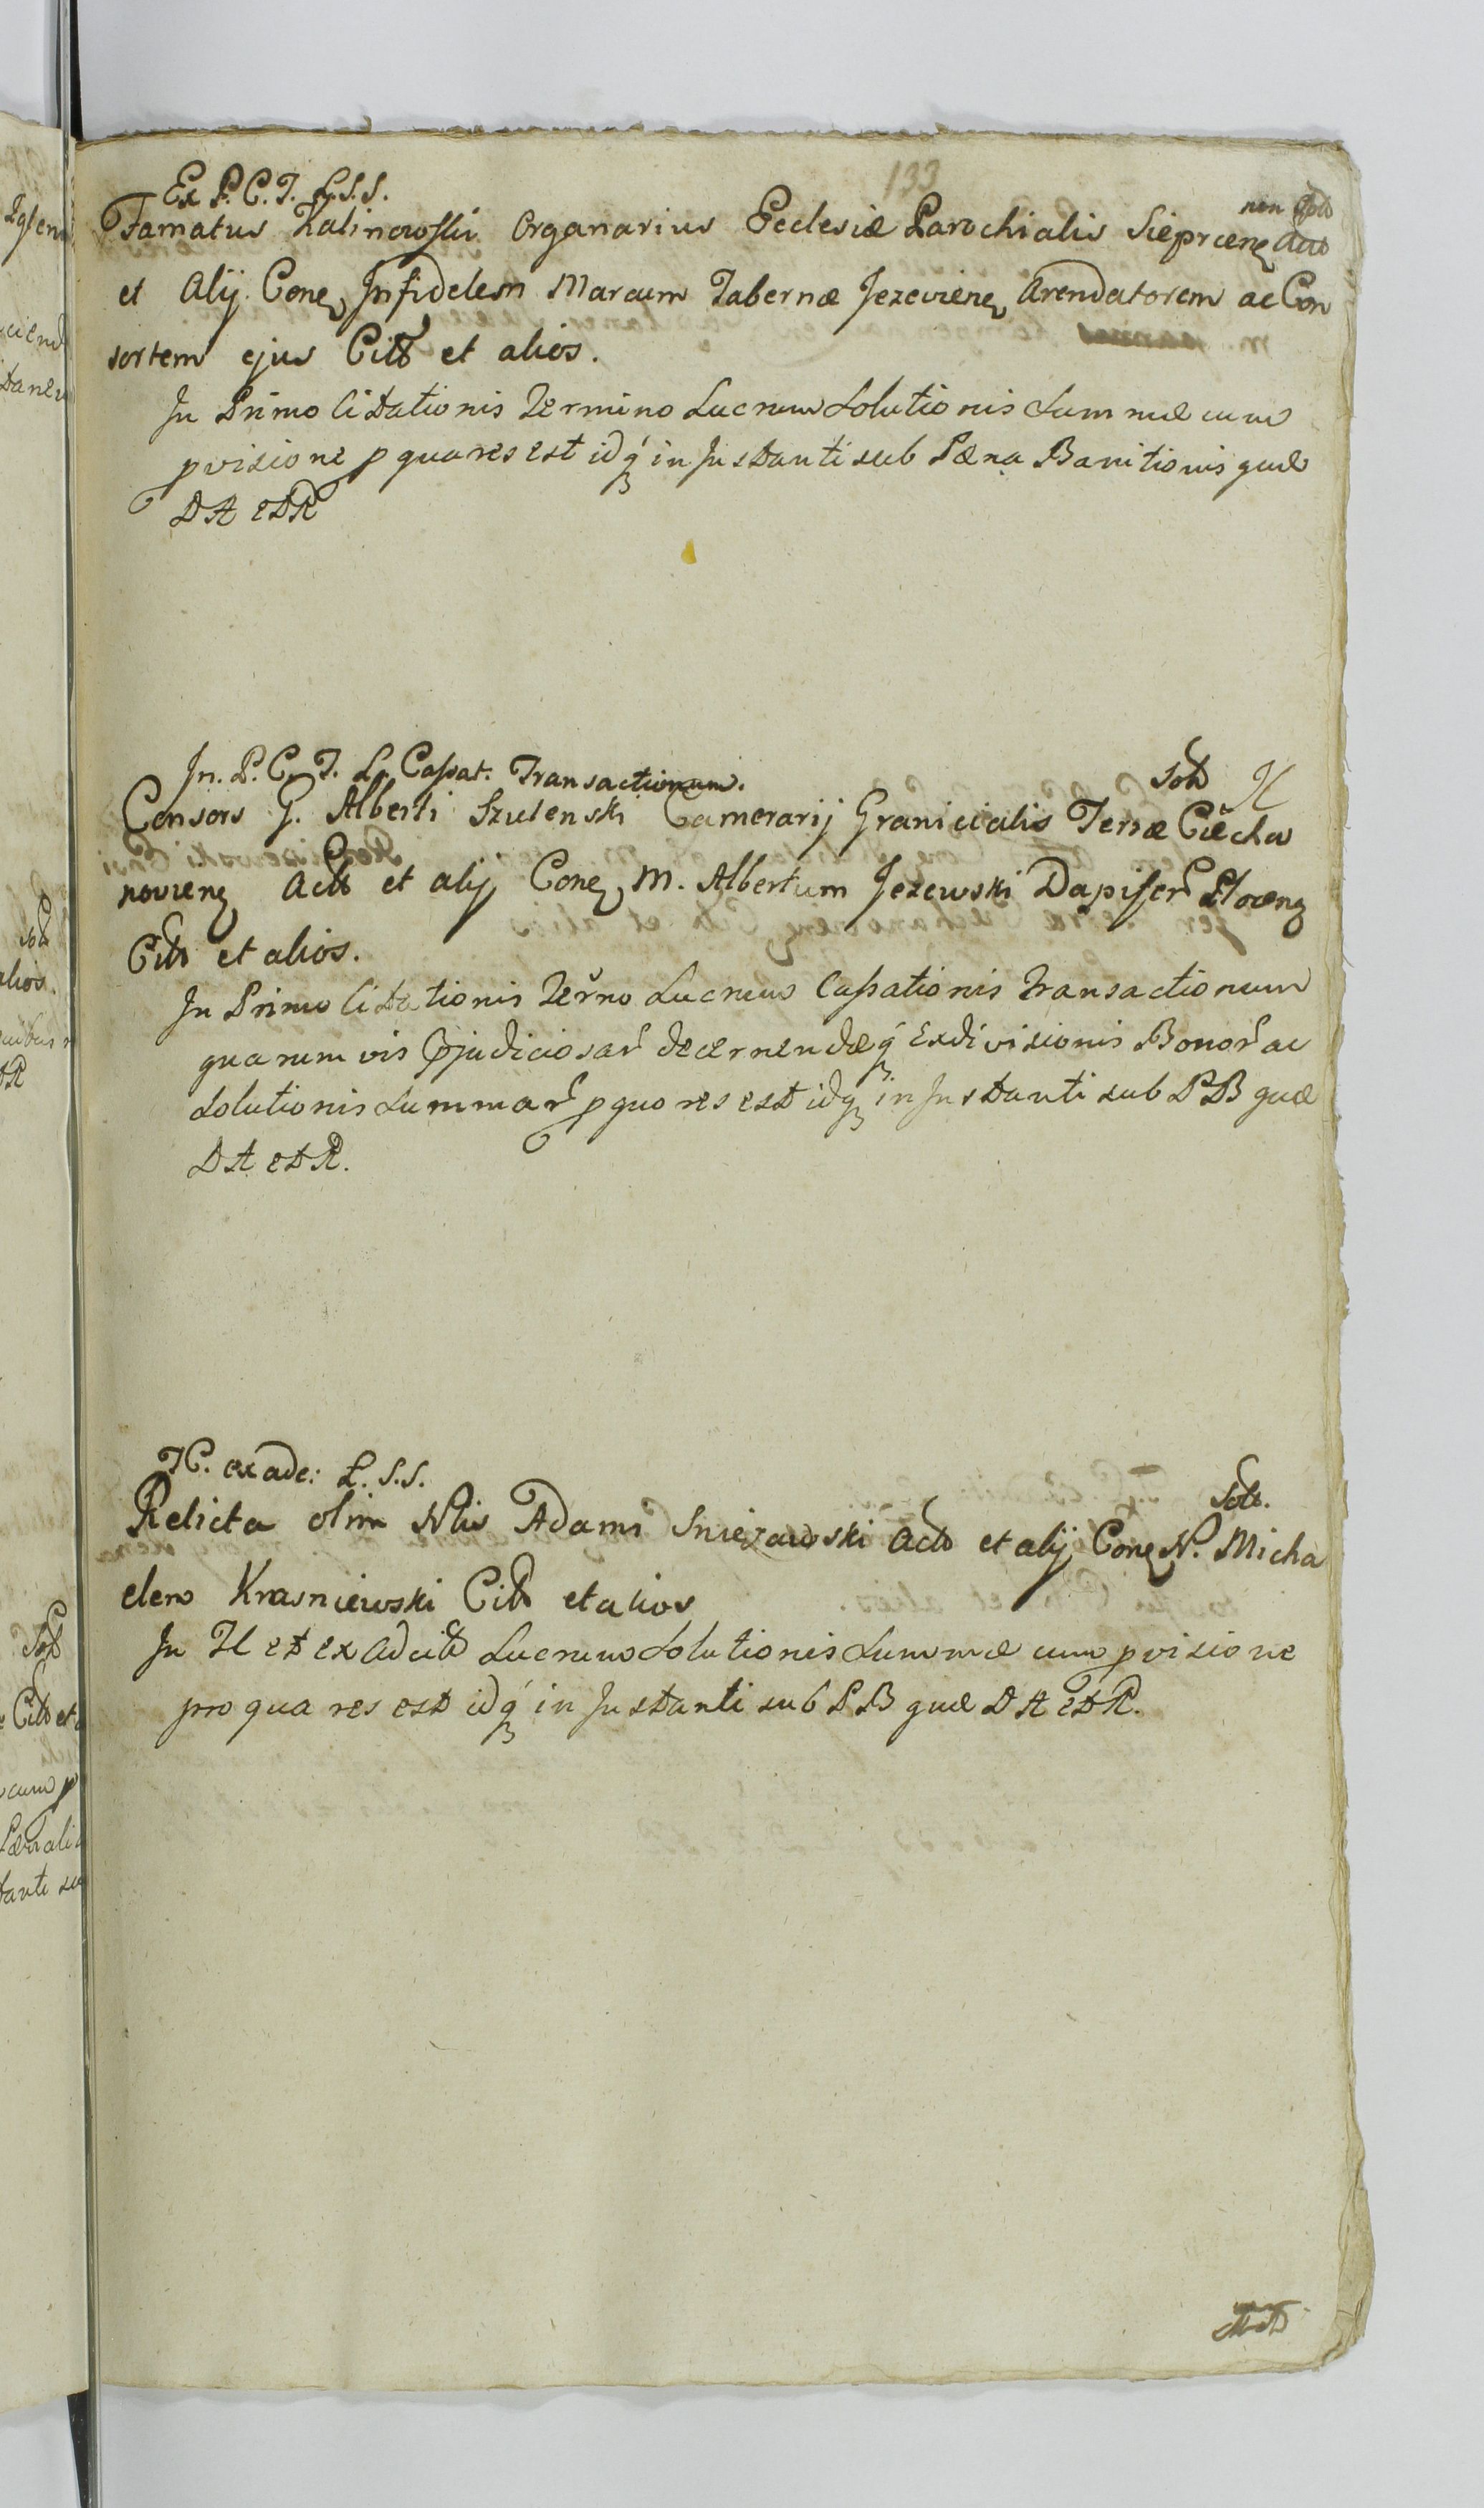 133
Ex P. C. T. L. S. S.
non Solt
Famatus Kalinowski Organarius Ecclesiæ Parochialis Sieprcens Actt
et Alij Cone Infidelem Marcum Tabernæ Jezeviens Arendatorem ac Con
sortem ejus Citt et alios.
In Primo Citationis Termino Lucrum Solutionis Summæ cum
pvisione p qua res est idq in Instanti sub Pæna Banitionis quæ
DA etR
In. P. C. T. L. Cassat. Transactionum.
Solt
Consors G. Alberti Szulenski Camerarij Granicialis Terræ Ciecha
noviens Actt et alij Cone M. Albertum Jezewski Dapifer Plocens
Citt et alios.
In Primo Citationis Terno Lucrum Cassationis Transactionum
quarumvis Pjudiciosar decernendæq Exdivisionis Bonor ac
Solutionis Summar p quo res est idq in Instanti sub PB quæ
DA etR.
H. ex adc: L. S. S.
Solt.
Relicta olim Nlis Adami Sniezawski Actt et alij Cone N. Micha
elem Krasniewski Citt et alios
In H et ex Adcitt Lucrum Solutionis Summæ cum pvisione
pro qua res est idq in Instanti sub PB quæ DA etR.